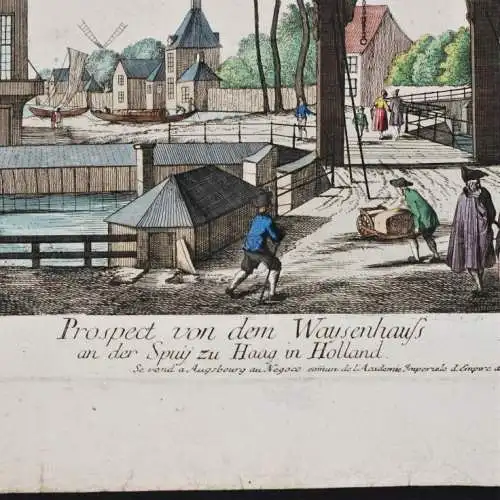 Prospect von dem Wausenhauſs
an der Spuÿ zu Haag in Holland.
Se vend a Augsbourg au Negoce comun de l'Academie Imperiale d'Empire d